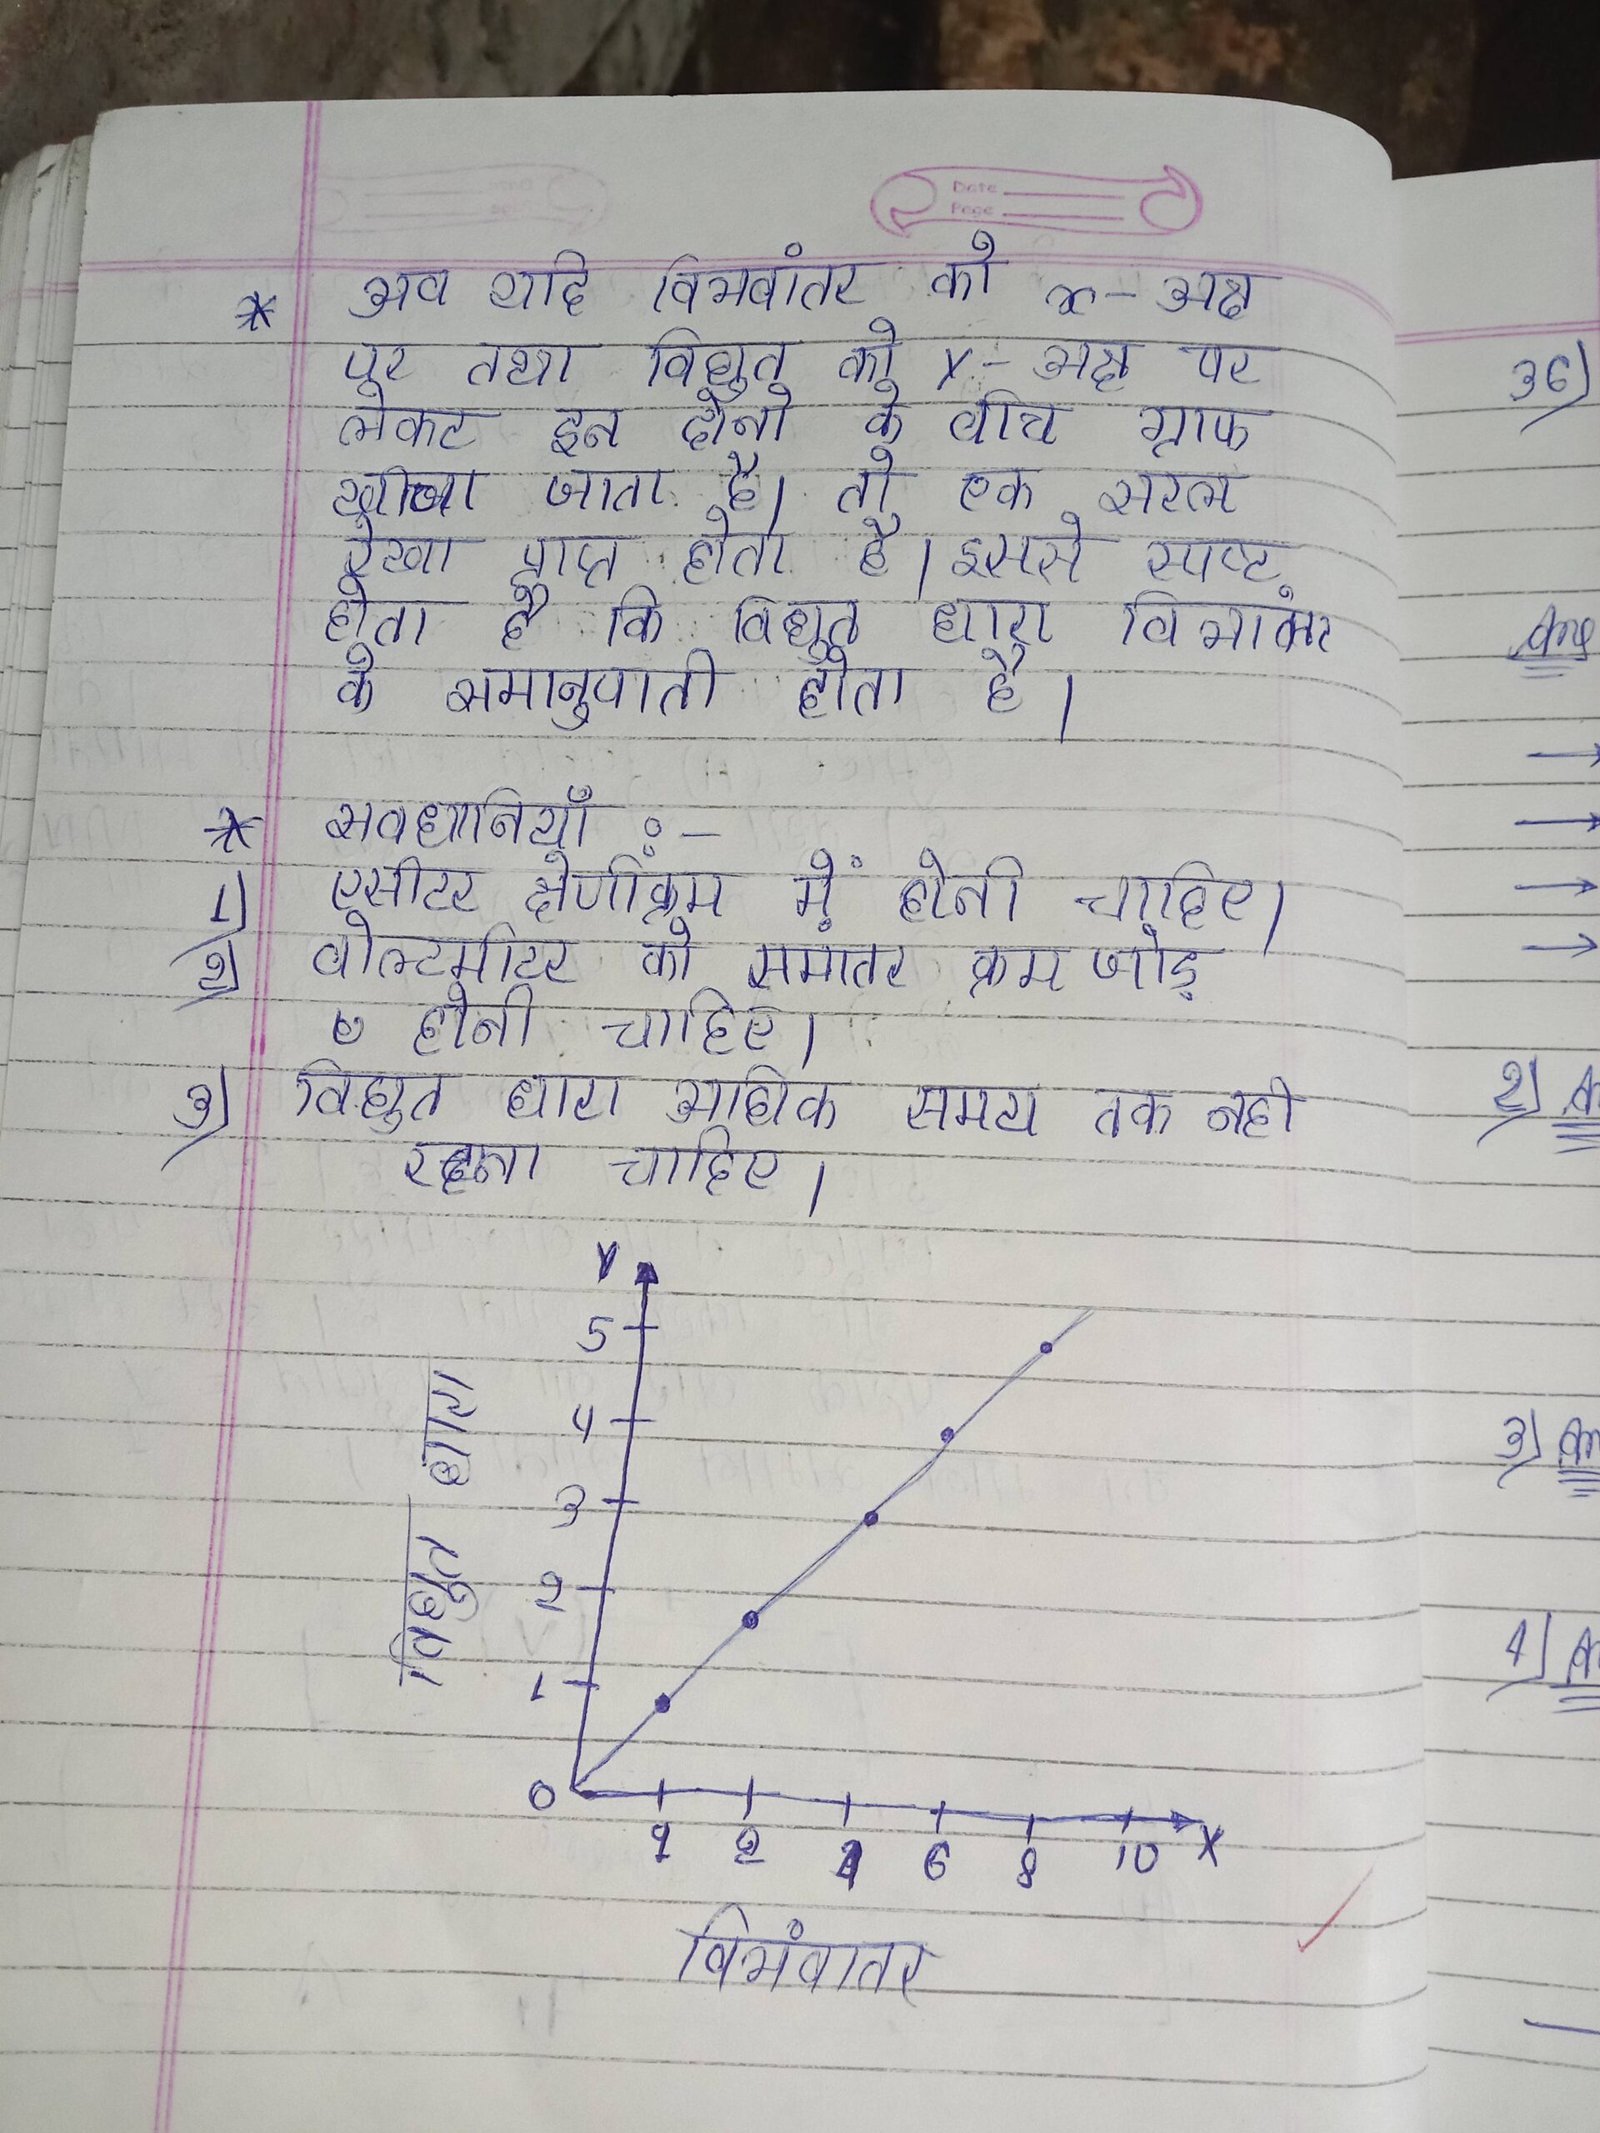 Date
Page
* अव यदि विभवांतर को x- अक्ष
पर तथा विद्युत को Y- अक्ष पर
लेकट इन दोनो के वीच ग्राफ
खीचा जाता है। तो एक सरल
रेखा प्राप्त होता है। इससे स्पष्ट
होता है कि विद्युत धारा विभातंर
के समानुपाती होता है।
* सवधानियाँ :-
1) एसीटर श्रेणीक्रम में होनी चाहिए।
2) वोल्टमीटर को समांतर क्रम जोड़
ए होनी चाहिए।
3) विद्युत धारा अधिक समय तक नही
रहना चाहिए।
Y
5
4
3
2
1
0
विद्युत धारा
2 4 6 8 10 X
विभंवातर
36)
Ans
→
→
→
→
2)
3)
4)